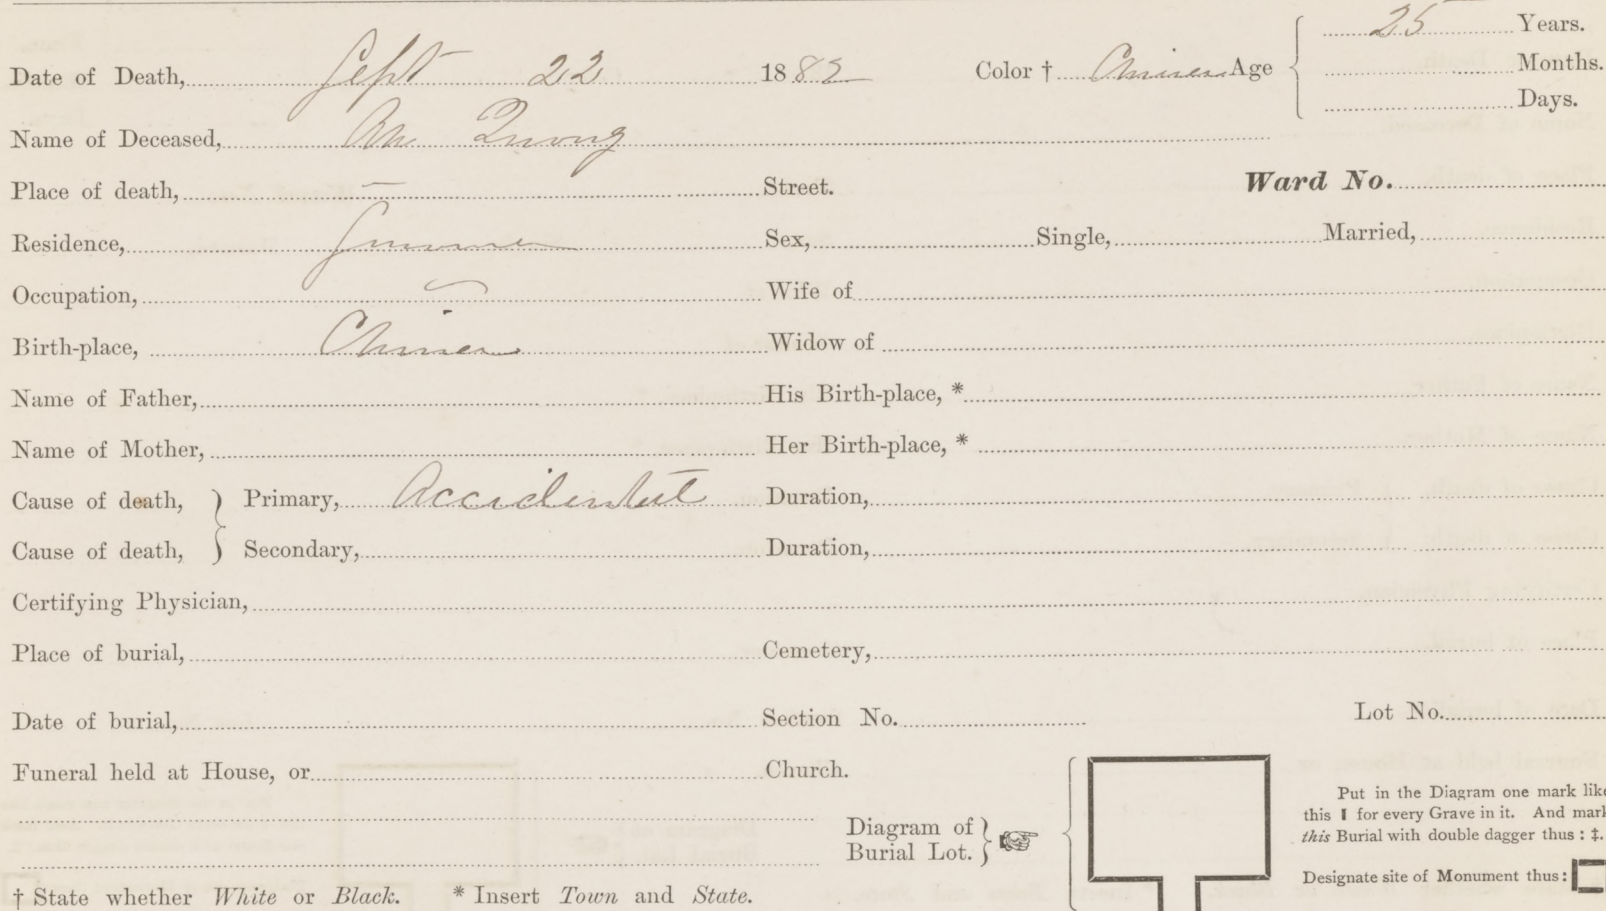 25 Years.
Date of Death, Sept 22 1882 Color † Chinese Age Months.
Days.
Name of Deceased, Ah Quong
Place of death, — Street. Ward No.
Residence, Sumner Sex, Single, Married,
Occupation, Wife of
Birth-place, China Widow of
Name of Father, His Birth-place, *
Name of Mother, Her Birth-place, *
Cause of death, } Primary, Accidental Duration,
Cause of death, } Secondary, Duration,
Certifying Physician,
Place of burial, Cemetery,
Date of burial, Section No. Lot No.
Funeral held at House, or Church.
Put in the Diagram one mark like
this I for every Grave in it. And mark
this Burial with double dagger thus : ‡.
Diagram of
Burial Lot. }
Designate site of Monument thus :
† State whether White or Black. * Insert Town and State.